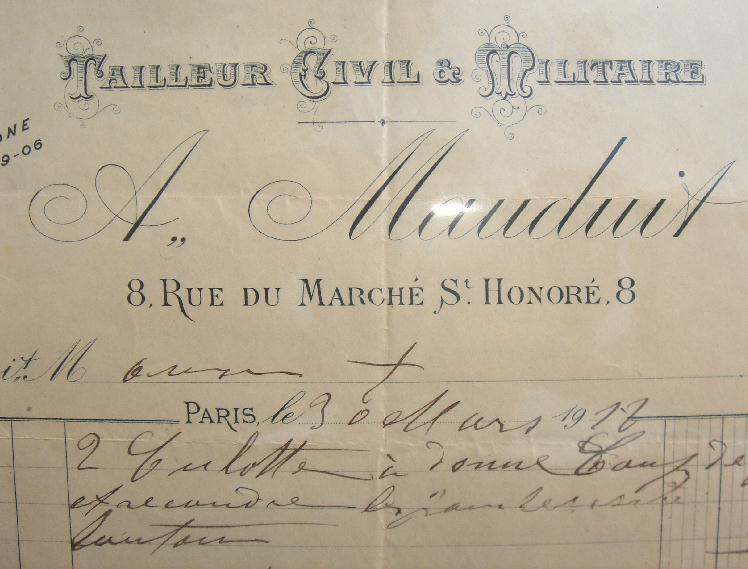 TAILLEUR CIVIL & MILITAIRE
ONE
9-06
A. Mauduit
8, RUE DU MARCHÉ St HONORÉ, 8
it M
PARIS, le 30 Mars 1912
2 Culotte à donne Coup de
et recoudre